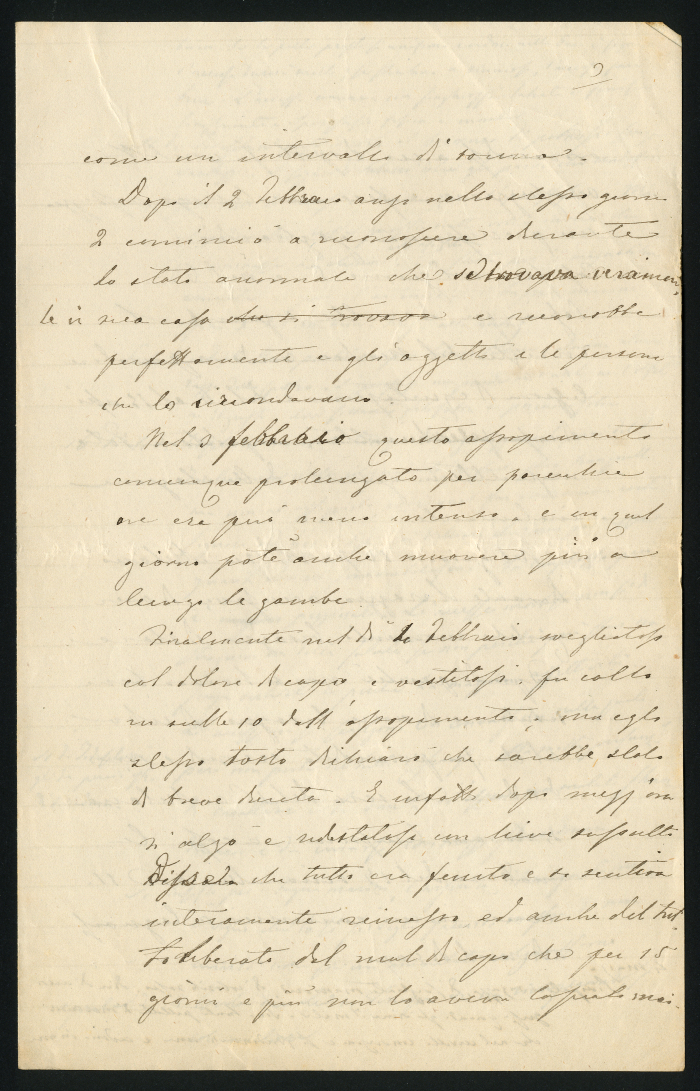 come un intervallo di sonno.
Dopo il 2 Febbraio anzi nello stesso giorno
2 cominciò a riconoscere durante
lo stato anormale che si trovava veramen-
te in sua casa che si trovava e riconobbe
perfettamente e gli oggetti e le persone
che lo circondavano.
Nel 3 febbraio questo assopimento
comunque prolungato per parecchie
ore era però meno intenso, e in quel
giorno potè anche muovere più a
lungo le gambe.
Finalmente nel dì Febbraio svegliatosi
col dolore di capo e vestitosi, fu colto
in sulle 10 dall'assopimento, ma egli
stesso tosto dichiarò che sarebbe stato
di breve durata. E infatti dopo mezz'ora
si alzò e ridestatosi con lieve sussulto
che tutto era finito e si sentiva
interamente rimesso, ed anche del tut-
to liberato dal mal di capo che per 15
giorni e più non lo aveva lasciato mai.